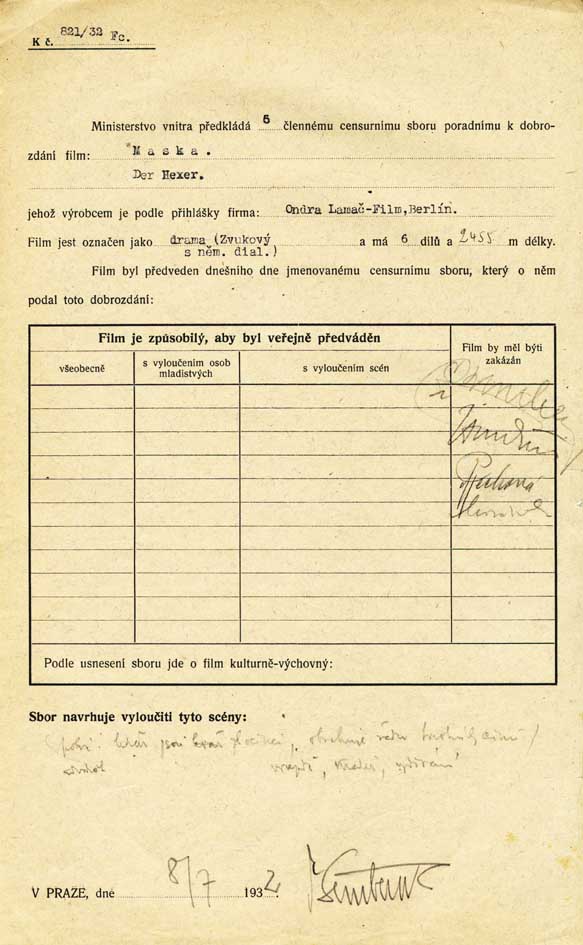 K č. 821/32 Fc.
Ministerstvo vnitra předkládá 5 člennému censurnímu sboru poradnímu k dobro-
zdání film: "Maska.
Der Hexer.
jehož výrobcem je podle přihlášky firma: Ondra Lamač-Film, Berlín.
Film jest označen jako drama (Zvukový a má 6 dílů a 2455 m délky.
s něm. dial.)
Film byl předveden dnešního dne jmenovanému censurnímu sboru, který o něm
podal toto dobrozdání:
Film je způsobilý, aby byl veřejně předváděn
Film by měl býti
zakázán
všeobecně
s vyloučením osob
mladistvých
s vyloučením scén
Podle usnesení sboru jde o film kulturně-výchovný:
Sbor navrhuje vyloučiti tyto scény:
V PRAZE, dne 8/7 1932.